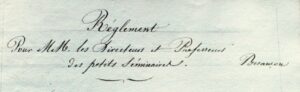 Règlement
Pour M.M. les Directeurs et Professeurs
des petits Séminaires. Besançon